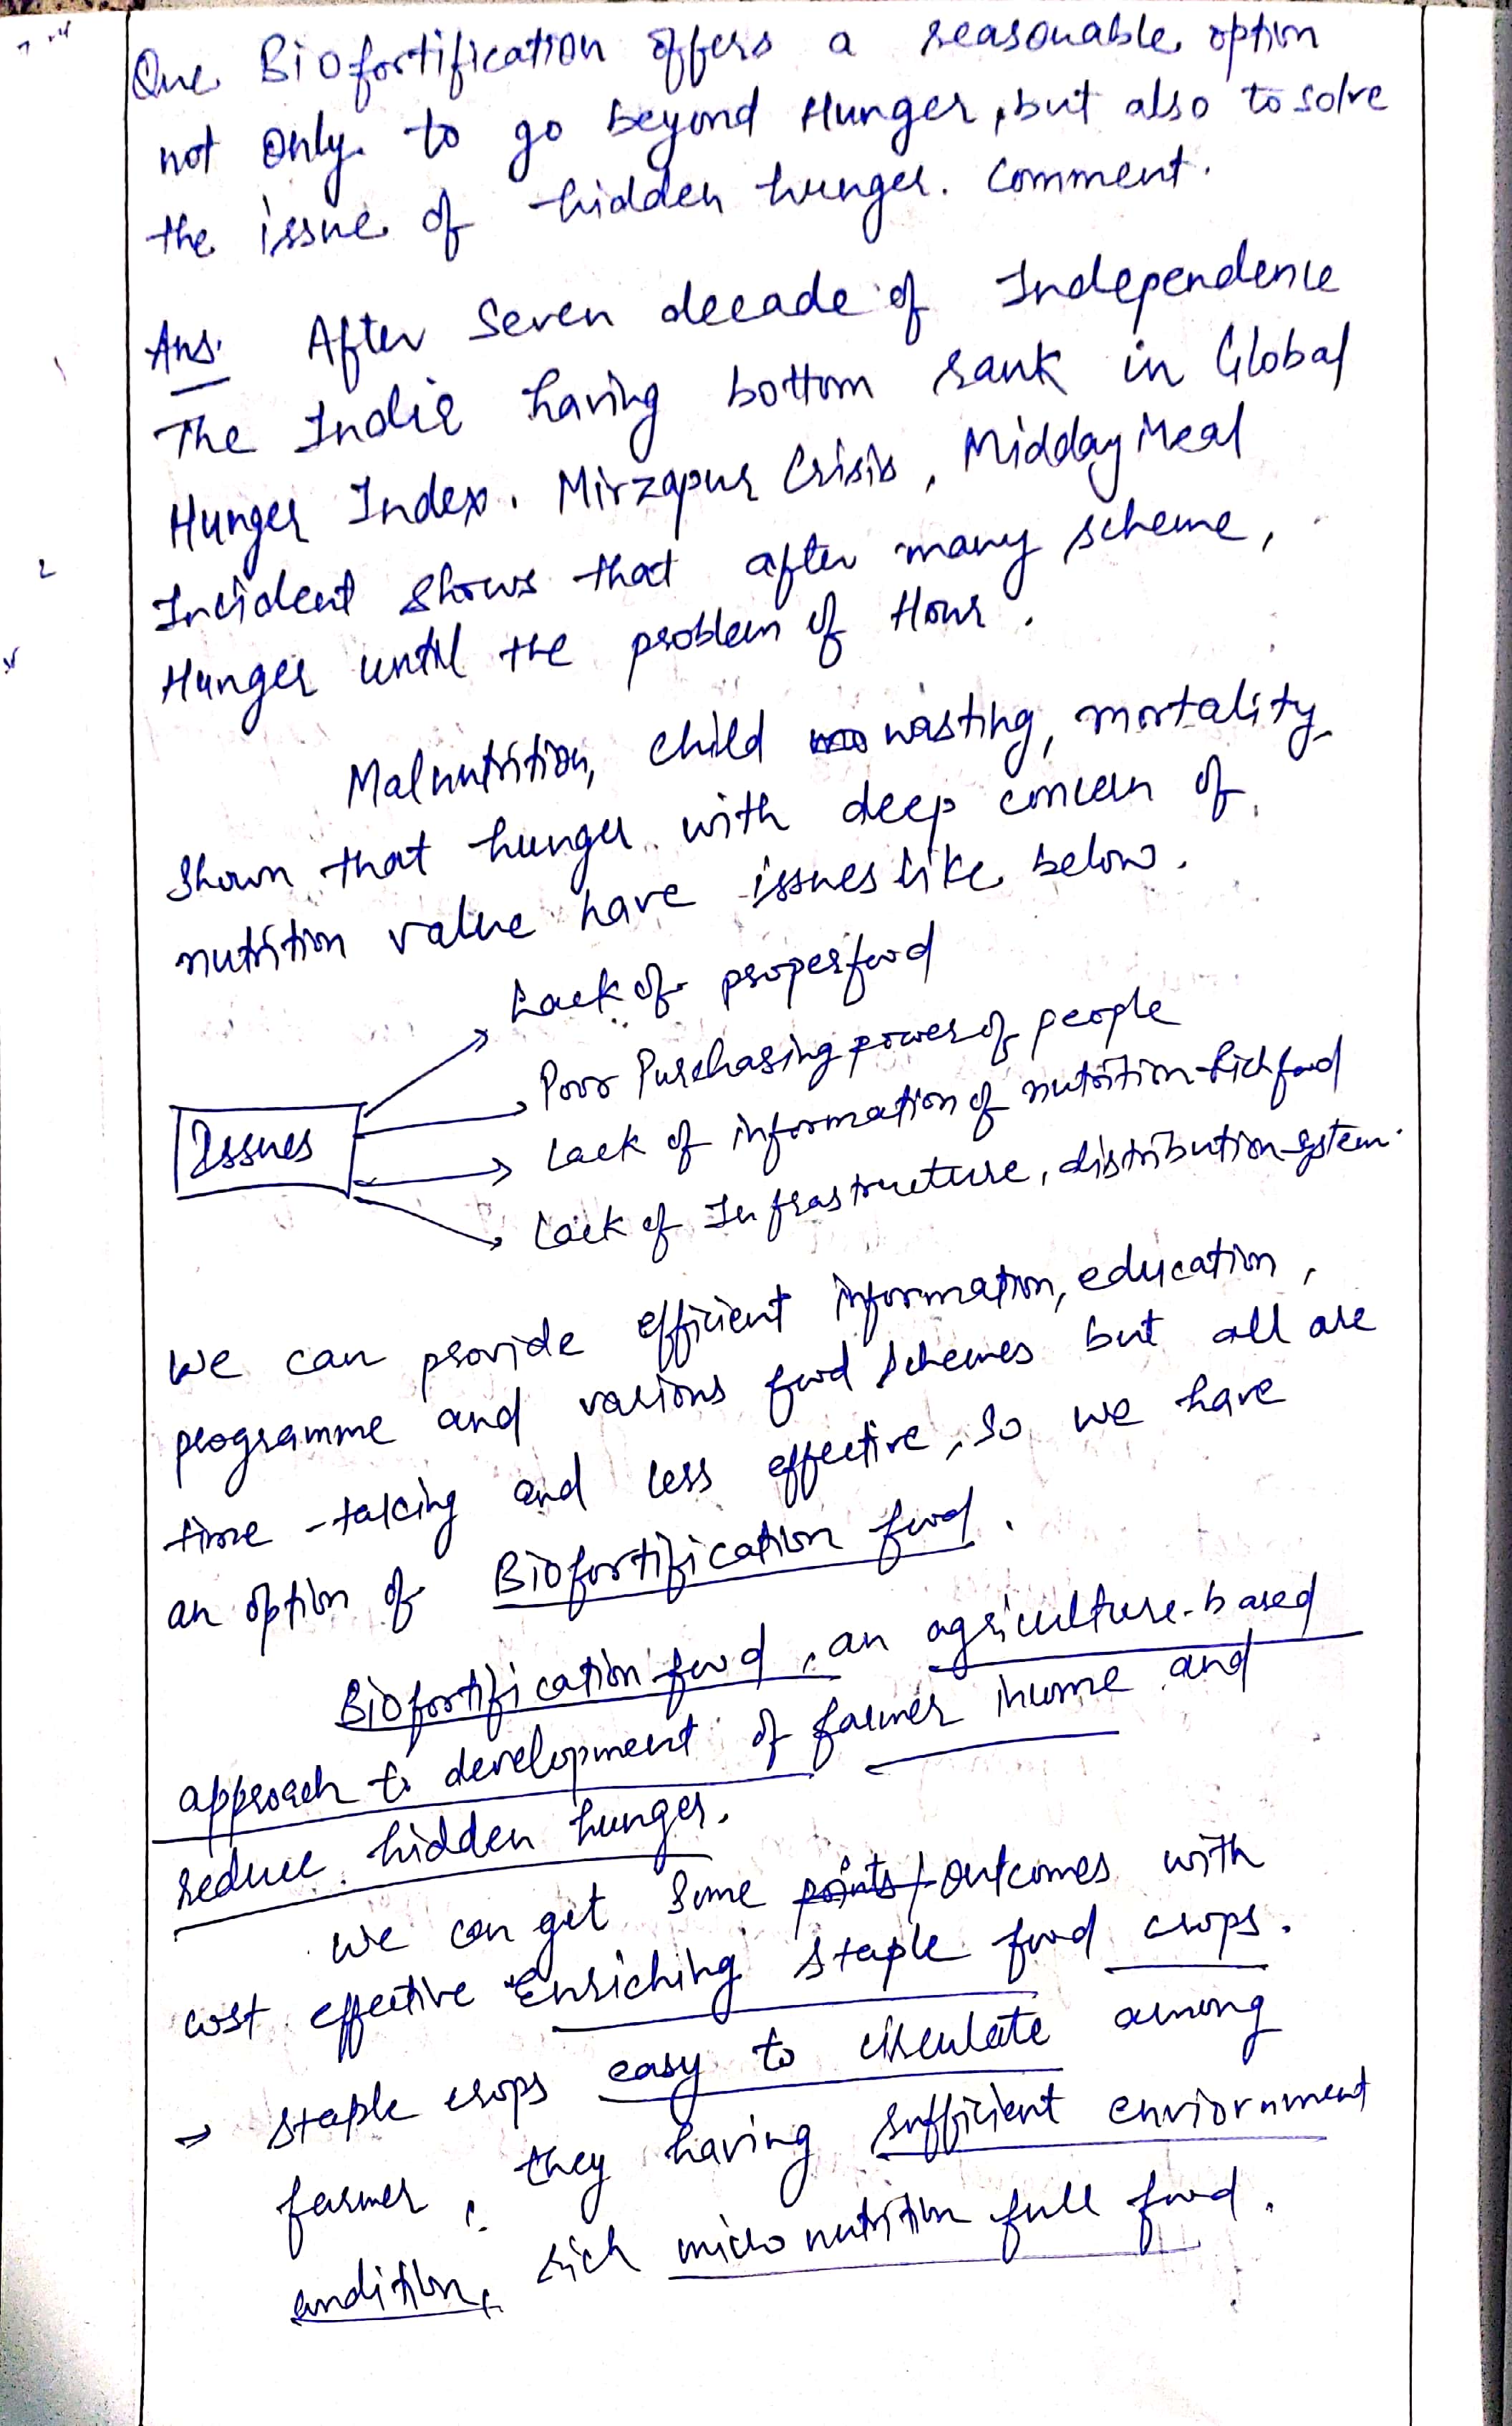 Que. Biofortification offers a reasonable option
not only to go beyond Hunger, but also to solve
the issue of hidden hunger. Comment.
Ans. After Seven decade of Independence
The India having bottom rank in Global
Hunger Index. Mirzapur Crisis, Midday Meal
Incident shows that after many scheme,
Hunger until the problem of Hour.
Malnutrition, child wasting, mortality
shown that hunger with deep concern of
nutrition value have issues like below.
Issues
Lack of proper food
Poor Purchasing power of people
Lack of information of nutrition-rich food
Lack of Infrastructure, distribution system.
We can provide efficient information, education,
programme and various food schemes but all are
time-taking and less effective, so we have
an option of Biofortification food.
Biofortification food, an agriculture-based
approach to development of farmer income and
reduce hidden hunger.
We can get some points/outcomes with
cost effective Enriching staple food crops.
→ Staple crops easy to circulate among
farmer, they having sufficient enviornment
condition, rich micro nutrition full food.